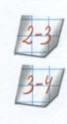 2-3
3-4